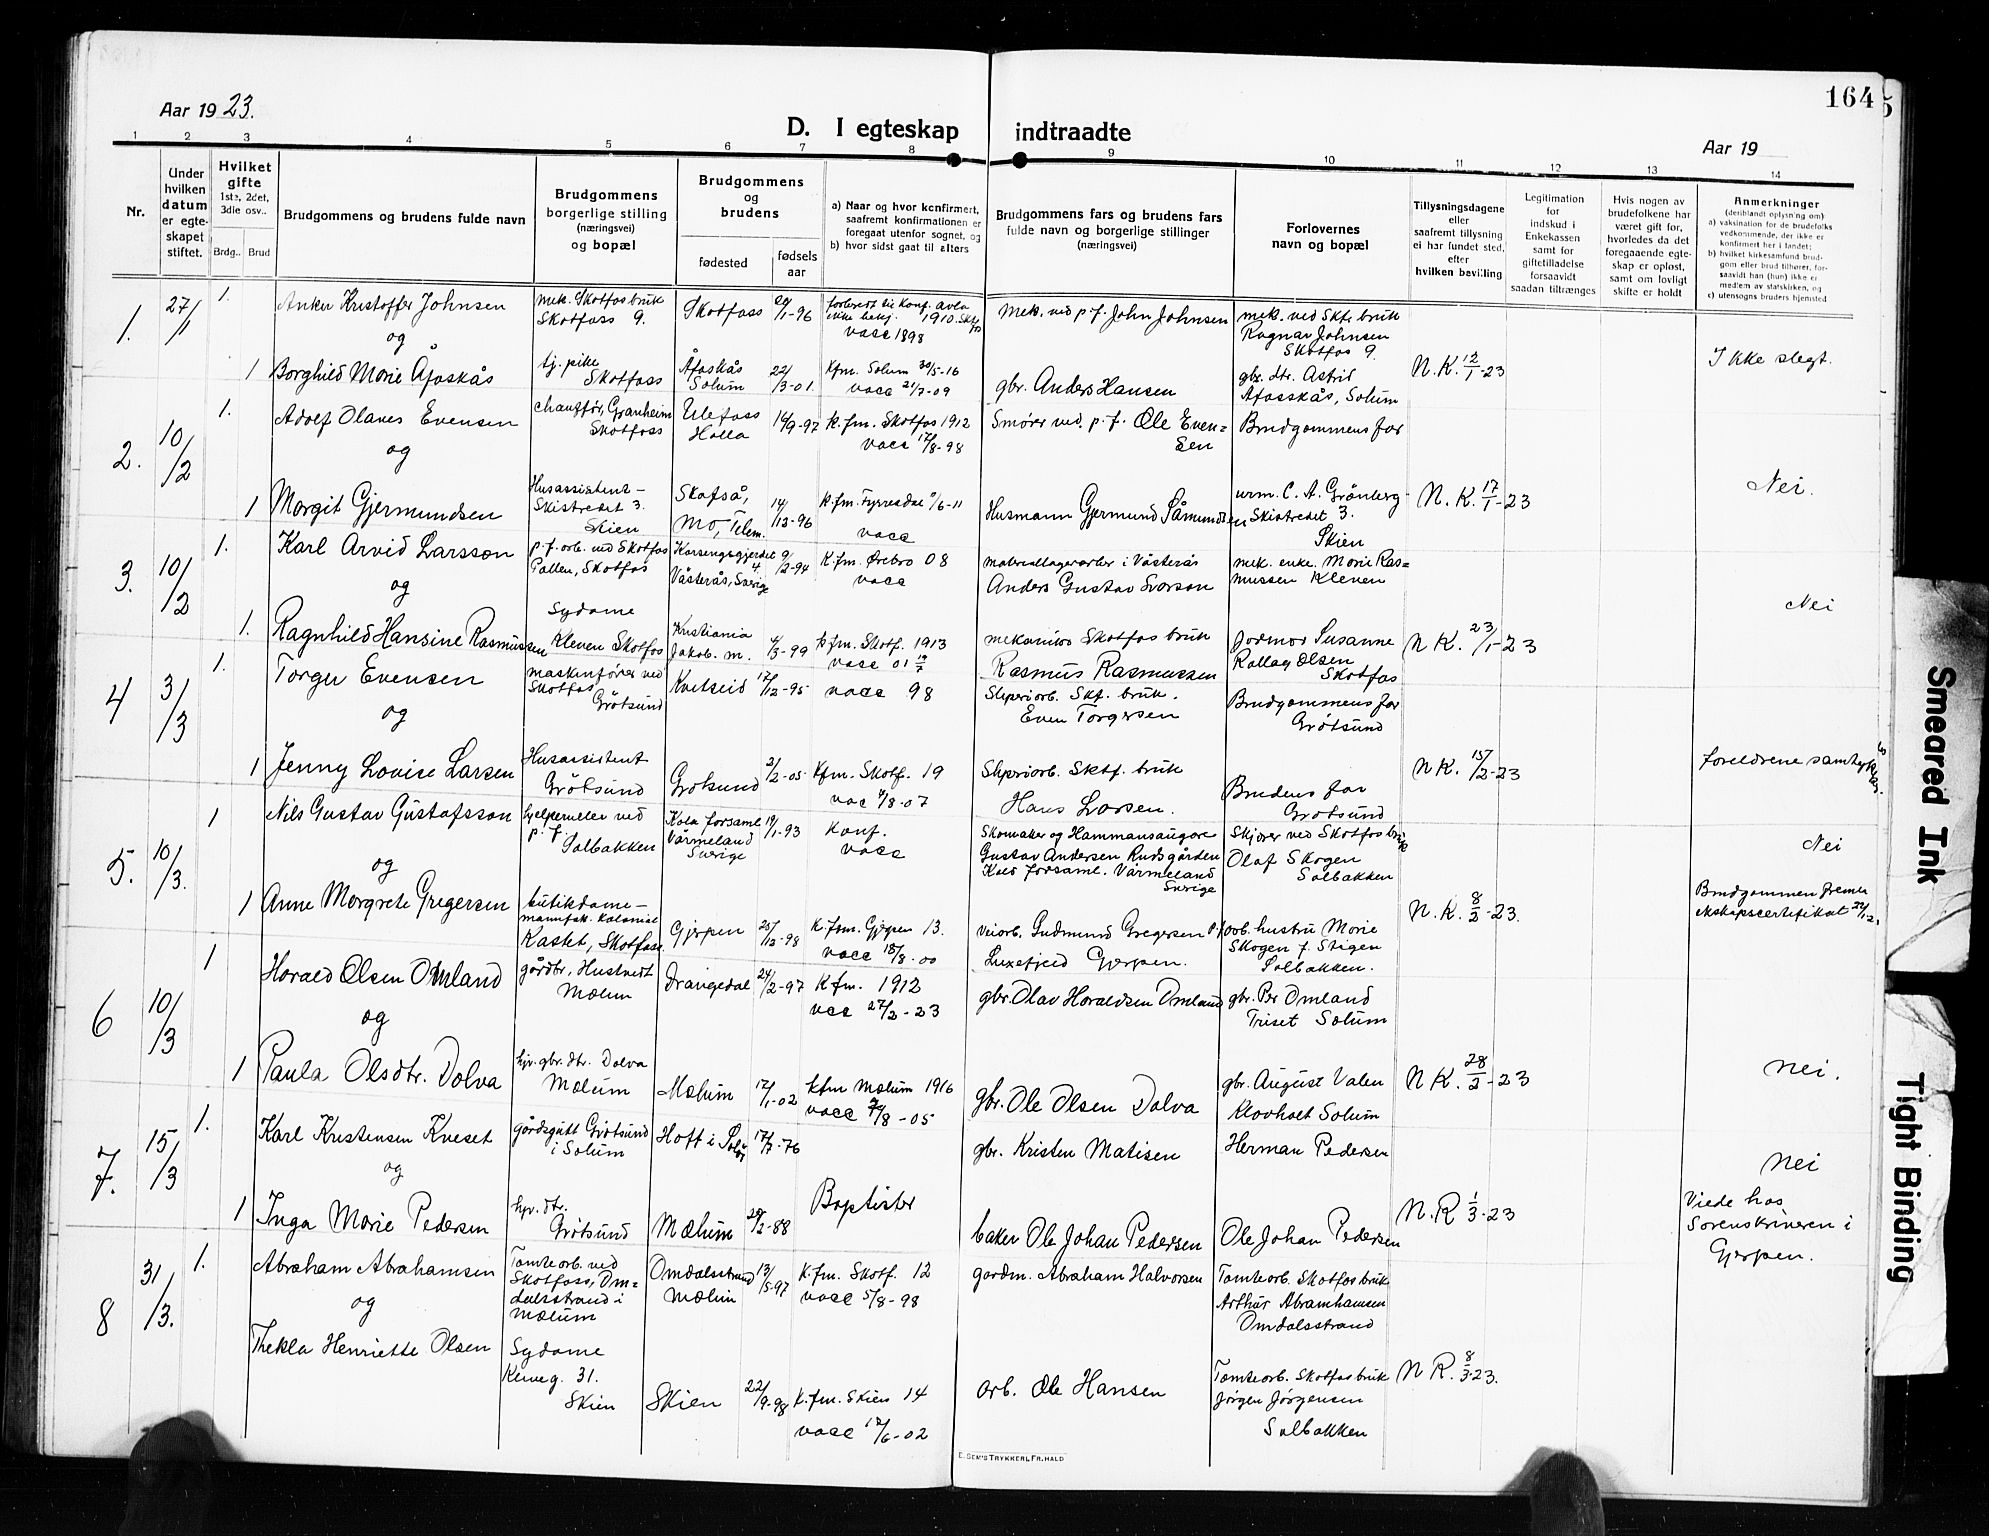 Aar 1923.
D. I egteskap indtraadte
164
Aar 19
1 2 3 4 5 6 7 8 9 10 11 12 13 14
Nr.
Under hvilken datum er egteskapet stiftet.
Hvilket gifte
1ste, 2det, 3die osv..
Brdg.. Brud
Brudgommens og brudens fulde navn
Brudgommens borgerlige stilling (næringsvei) og bopæl
Brudgommens og brudens
fødested
fødsels aar
a) Naar og hvor konfirmert, saafremt konfirmationen er foregaat utenfor sognet, og
b) hvor sidst gaat til alters
Brudgommens fars og brudens fars fulde navn og borgerlige stillinger (næringsvei)
Forlovernes navn og bopæl
Tillysningsdagene eller saafremt tillysning ei har fundet sted, efter hvilken bevilling
Legitimation for indskud i Enkekassen samt for giftetilladelse forsaavidt saadan tiltrænges
Hvis nogen av brudefolkene har været gift før, hvorledes da det foregaaende egteskap er opløst, samt om lovligt skifte er holdt
Anmerkninger
(deriblandt oplysning om)
a) vaksination for de brudefolks vedkommende, der ikke er konfirmert her i landet;
b) hvilket kirkesamfund brudgom eller brud tilhører, forsaavidt han (hun) ikke er medlem av statskirken, og
c) utensogns bruders hjemsted
1. 27/1 1. Anker Kristoffer Johnsen
og
mek. Skotfos bruk
Skotfoss 9.
Skotfoss
1910
vacc 1898
mek. ved p.f. John Johnsen
mek. ved Skf. bruk
Ragnar Johnsen
Skotfos 9.
1 Borghild Marie Åfoskås
tj. pike
Skotfoss
Åfoskås
Solum
22/3-01.
Kfm. Solum 30/5-16
vacc 21/7-09
gbr. Anders Hansen
gbr. dtr. Astrid
Afosskås, Solum
N.K. 12/1-23
Ikke slegt.
2. 10/2 1. Adolf Olaves Evensen
og
chauffør, Granheim
Skotfoss
Ulefoss
Holla
16/9-97
k.fm. Skotfos 1912
vacc 17/8-98
Smører ved p.f. Ole Even=
sen
Brudgommens far
1 Margit Gjermundsen
Husassistent-
Skistredet 3.
Skien
Skafså,
Mo, Telem.
14/12-96
k.fm. Fyresdal 9/6-11
vacc
Husmann Gjermund Såmundsen
urm. C. A. Grönberg
Skistredet 3.
Skien
N.K. 17/1-23
Nei.
3. 10/2 1. Karl Arvid Larsson
og
p.f. arb. ved Skotfos
Pollen, Skotfos
Västerås, Sverige
9/2-94
K.fm. Örebro 08
vacc
materiallagerarbr i Västerås
Anders Gustav Larson
mek. enke. Marie Ras=
mussen Kleven
1. Ragnhild Hansine Rasmussen
Sydame
Kleven Skotfos
Kristiania
Jakob. m.
4/3-99
k.fm. Skotf. 1913
vacc 01 19/7
mekaniker Skotfos bruk
Rasmus Rasmussen
Jordmor Susanne
Rollag Olsen
Skotfos
N.K. 23/1-23
Nei
4 3/3 1. Torger Evensen
og
maskinfører ved
Skotfos
Grötsund
Kviteseid
17/12-95
vacc 98
Sliperiarb. Skf. bruk.
Even Torgersen
Brudgommens far
Grötsund
1 Jenny Lovise Larsen
Husassistent
Grötsund
Grötsund
2/2-05
Kfm. Skotf. 19
vac 9/8-07
Sliperiarb. Sktf. bruk
Hans Larsen.
Brudens far
Grötsund
N.K. 15/2-23
foreldrene samtykker.
5. 10/3. 1 Nils Gustav Gustafsson
og
hjelpemeler ved
p.f.
Solbakken
Kola forsaml.
Värmeland
Sverige
19/1-93
Konf.
vacc
Skomaker og Hammansaugare
Gustav Andersen Rudsgården
Kola forsaml. Värmeland
Sverige
Skjører ved Skotfos bruk
Olaf Skogen
Solbakken
Nei
1 Anne Margrete Gregersen
butikdame-
manufak. kolonial
Kastet, Skotfoss
Gjerpen
25/12-98
K.fm. Gjerpen 13.
vacc 18/8-00
veiarb. Gudmund Gregersen p.f.
Luxefjeld Gjerpen.
arb. hustru Marie
Skogen f. Stigen
Solbakken.
N.K. 8/2-23.
Brudgommen frem.
ekskapscertifikat
6 10/3 1 Harald Olsen Omland
og
gårdbr, Hustvedt
Mælum
Drangedal
24/2-97
K.fm. 1912
vcc 27/2-23
gbr. Olav Haraldsen Omland
gbr. Per Omland
Triset Solum
1 Paula Olsdtr. Dolva
hjv. gbr. dtr. Dolva
Mælum
Mælum
17/1-02
kfm Mælum 1916
vacc -05
gbr. Ole Olsen Dolva
gbr. August Valen
Klovholt Solum
N.K. 28/2-23
Nei.
7. 15/3 1. Karl Kristensen Kveset
og
gårdsgutt Grötsund
i Solum
Hoff i Solör
17/7-76
Baptister
gbr. Kristen Matisen
Herman Pedersen
Nei
1 Inga Marie Pedersen
hjv. dtr.
Grötsund
Mælum
28/2-88
baker Ole Johan Pedersen
Ole Johan Pedersen
N.K 1/3-23
Viede hos
Sorenskriveren i
Gjerpen.
8 31/3. 1. Abraham Abrahamsen
og
Tomtearb. ved
Skotfoss, Om-
dalsstrand i
Mælum
Omdalsstrand
Mælum
13/5-97
K.fm. Skotf. 12
vacc 5/8-98
gardm. Abraham Halvorsen
Tomtearb. Skotfos bruk
Arthur Abramhamsen
Omdalsstrand
Thekla Henriette Olsen
Sydame
31.
Skien
Skien
22/9-98
k.fm. Skien 14
vacc 12/6-02
arb. Ole Hansen
Tomtearb. Skotfos bruk
Jørgen Jørgensen
Solbakken
N.K. 8/3-23.
E. SEM'S TRYKKERI, FR.HALD
Smeared Ink
Tight Binding